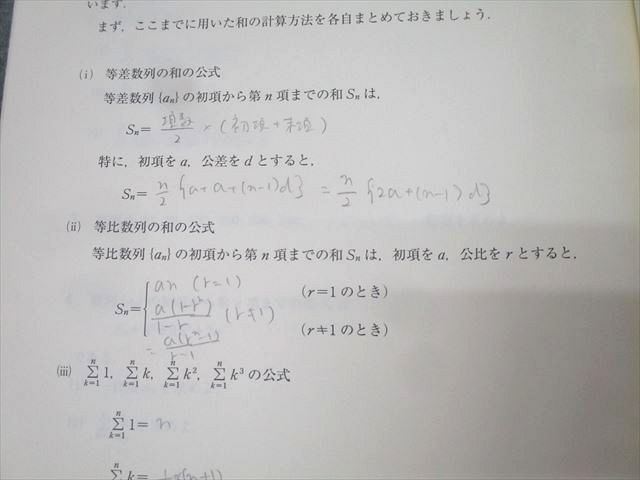 います.
まず,ここまでに用いた和の計算方法を各自まとめておきましょう.
(i) 等差数列の和の公式
等差数列{aₙ}の初項から第n項までの和Sₙは,
Sₙ= 項数/2 × (初項+末項)
特に,初項をa,公差をdとすると,
Sₙ= n/2 {a+a+(n-1)d} = n/2 {2a+(n-1)d}
(ii) 等比数列の和の公式
等比数列{aₙ}の初項から第n項までの和Sₙは,初項をa,公比をrとすると,
Sₙ={ an (r=1) (r=1のとき)
a(1-rⁿ)/1-r (r≠1) (r≠1のとき)
= a(rⁿ-1)/r-1
(iii) ∑ₖ₌₁ⁿ 1, ∑ₖ₌₁ⁿ k, ∑ₖ₌₁ⁿ k², ∑ₖ₌₁ⁿ k³ の公式
∑ₖ₌₁ⁿ 1= n
∑ⁿ k= 1 n(n+1)